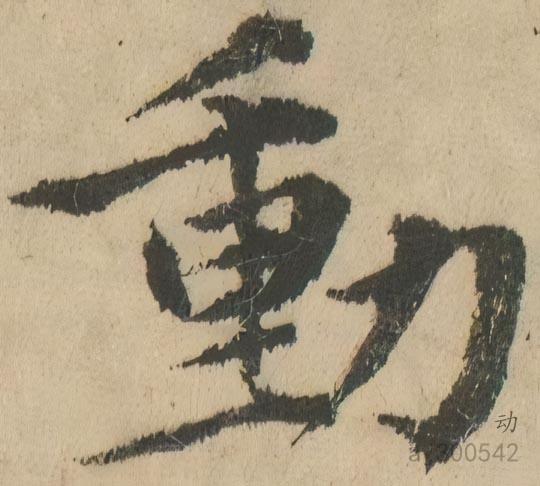 動
动
a1300542